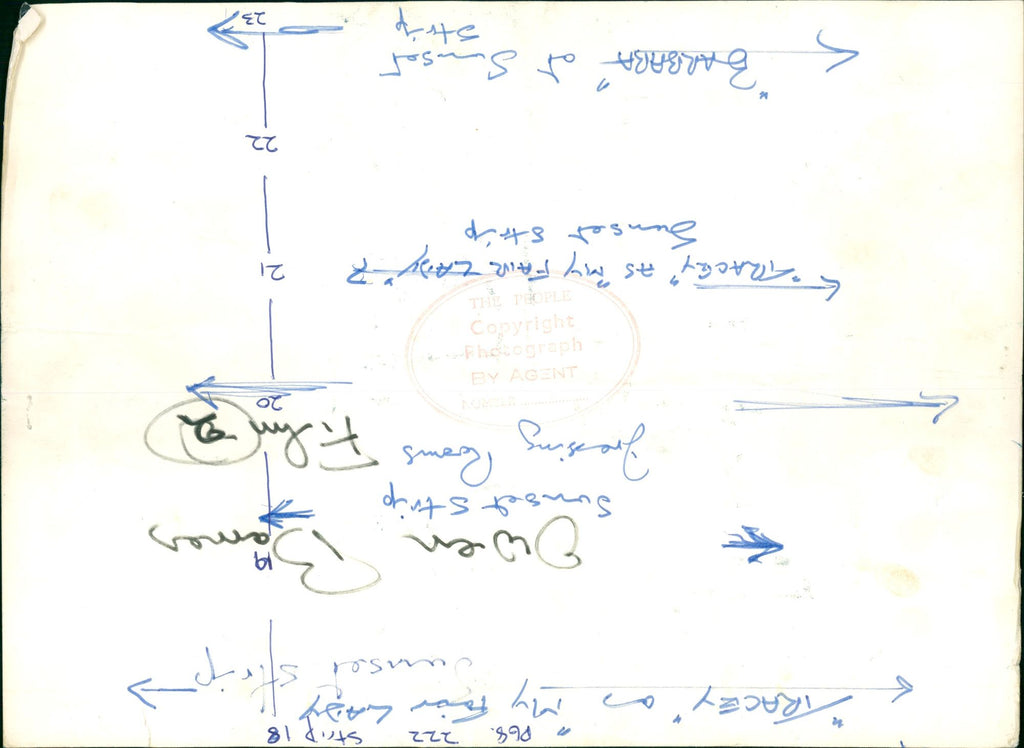 P68. 222 Strip 18
"TRACEY" as "My Fair LADY
Sunset Strip
19
Owen Barnes
Sunset Strip
Dressing Rooms
Film 2
20
THE PEOPLE
Copyright
Photograph
BY AGENT
21
"TRACEY" AS "MY FAIR LADY" ?
Sunset Strip
22
"BARBARA" at Sunset
Strip
23